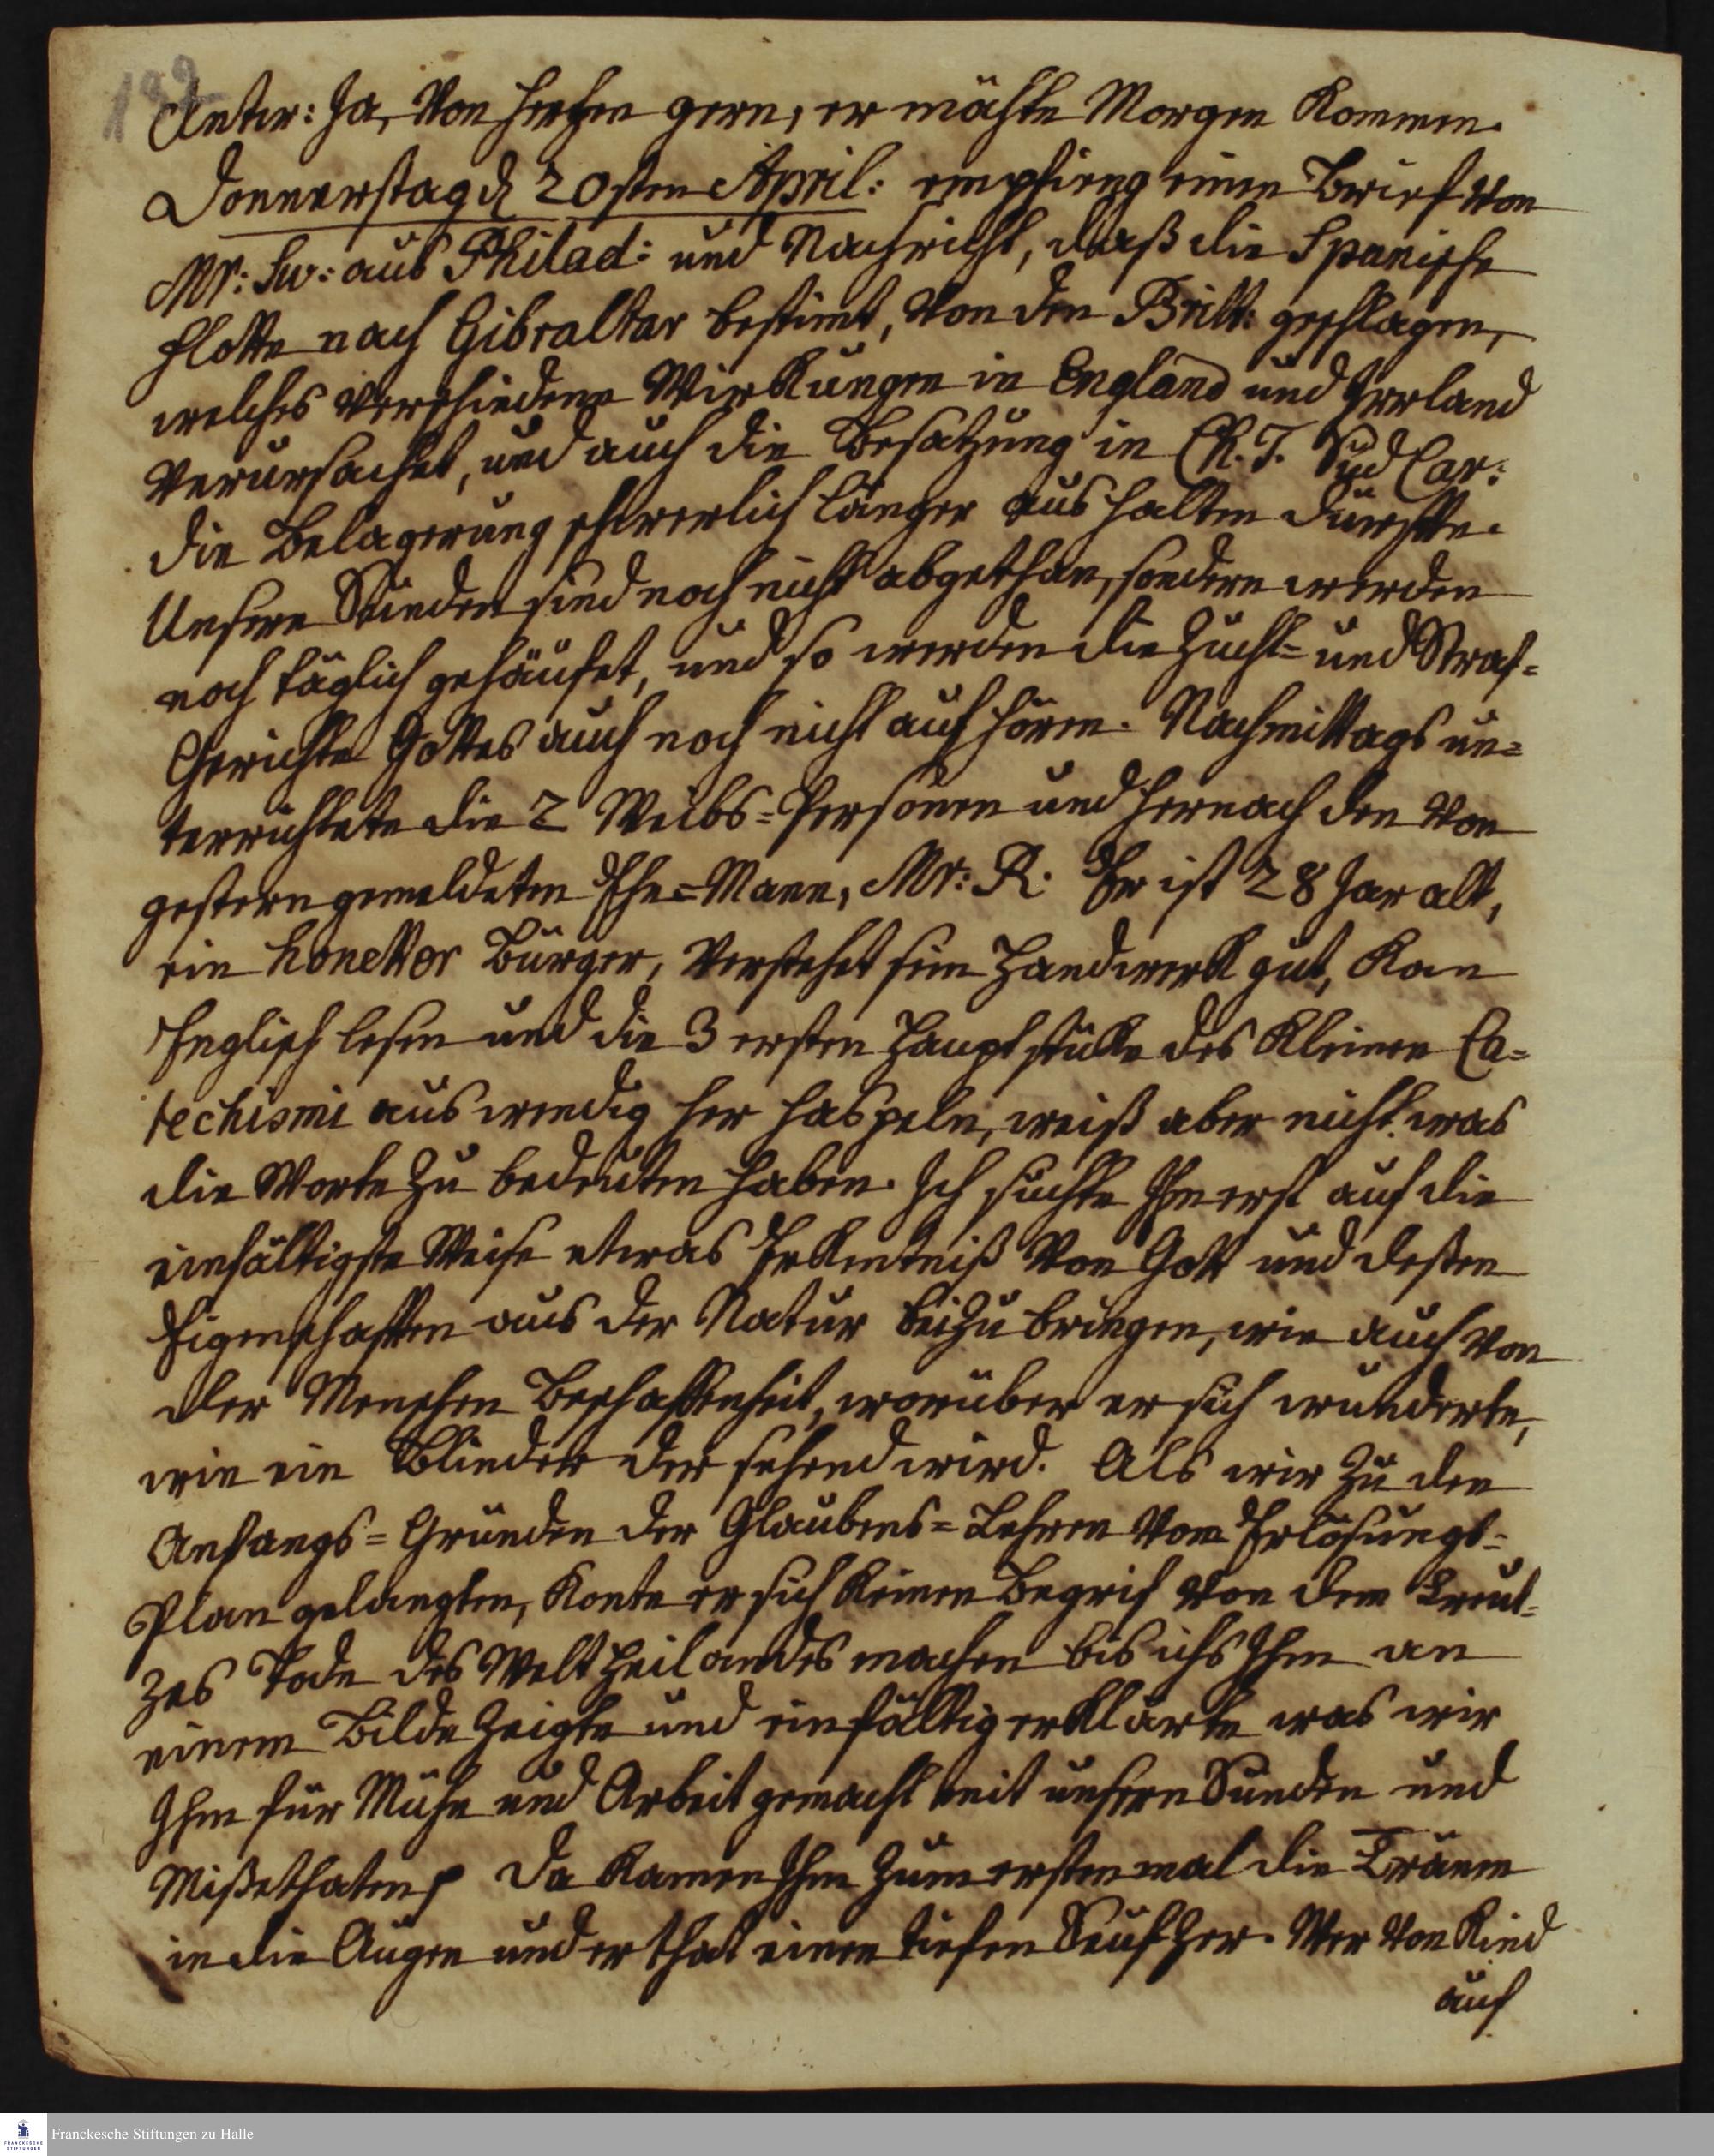 Antw: Ja, von Hertzen gern, er möchte Morgen kommen.
Donnerstag d 20sten April: empfieng einen Brief von
Mr: Sw: aus Philad: und Nachricht, daß die Spanische
Flotte nach Gibraltar bestimt, von den Britt: geschlagen,
welches verschiedene Wirkungen in England und Irrland
verursachet, und auch die Besatzung in Ch. T. Süd Car:
die Belagerung schwerlich länger aushalten dürffte.
Unsere Sünden sind noch nicht abgethan, sondern werden
noch täglich gehäufet, und so werden die Zucht= und Straf=
Gerichte Gottes auch noch nicht auf hören. Nachmittags un=
terrichtete die 2 Weibs=Personen und hernach den von
gestern gemeldeten Ehe=Mann, Mr: R. Er ist 28 Jar alt,
ein honetter Bürger, verstehet sein Handwerk gut, kan
Englisch lesen und die 3 ersten Hauptstücke des Kleinen Ca=
techismi auswendig her haspeln, weiß aber nicht was
die Worte zu bedeuten haben. Ich suchte Ihm erst auf die
einfältigste Weise etwas Erkentniß von Gott und deßen
Eigenschafften aus der Natur beizubringen, wie auch von
der Menschen Beschaffenheit, worüber er sich wunderte,
wie ein Blinder der sehend wird. Als wir zu den
Anfangs=Gründen der Glaubens=Lehren vom Erlösungs=
Plan gelangten, konte er sich keinen Begrif von dem Creut=
zes Tode des Weltheilandes machen bis ichs Ihm an
einem Bilde zeigte und einfältig erklärte was wir
Ihm für Mühe und Arbeit gemacht mit unsern Sünden und
Mißethaten p Da kamen Ihm zum erstenmal die Tränen
in die Augen und er that einen tiefen Seufzer. Wer von Kind
auf
Franckesche Stiftungen zu Halle